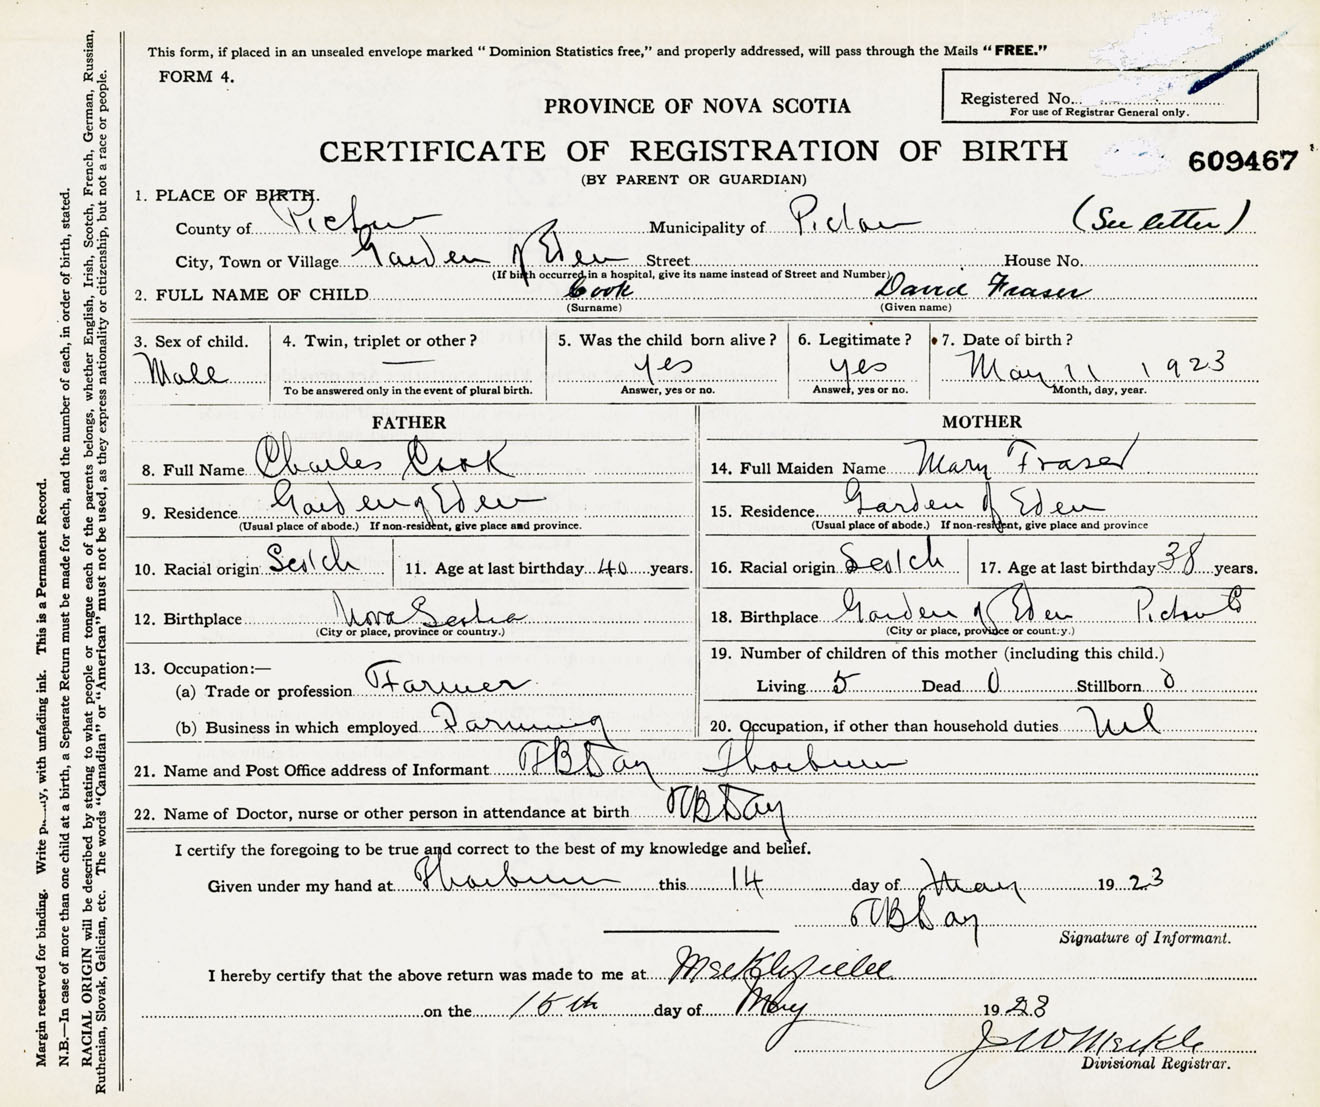 This form, if placed in an unsealed envelope marked "Dominion Statistics free," and properly addressed, will pass through the Mails "FREE."
FORM 4.
PROVINCE OF NOVA SCOTIA
Registered No.
For use of Registrar General only.
CERTIFICATE OF REGISTRATION OF BIRTH
609467
(BY PARENT OR GUARDIAN)
1. PLACE OF BIRTH.
County of Pictou Municipality of Pictou (See letter)
City, Town or Village Garden of Eden Street House No.
(If birth occurred in a hospital, give its name instead of Street and Number)
2. FULL NAME OF CHILD Cook David Fraser
(Surname) (Given name)
3. Sex of child. 4. Twin, triplet or other? 5. Was the child born alive? 6. Legitimate? 7. Date of birth?
Male — yes yes May 11 1923
To be answered only in the event of plural birth. Answer, yes or no. Answer, yes or no. Month, day, year.
FATHER MOTHER
8. Full Name Charles Cook 14. Full Maiden Name Mary Fraser
9. Residence Garden of Eden 15. Residence Garden of Eden
(Usual place of abode.) If non-resident, give place and province. (Usual place of abode.) If non-resident, give place and province
10. Racial origin Scotch 11. Age at last birthday 40 years. 16. Racial origin Scotch 17. Age at last birthday 38 years.
12. Birthplace Nova Scotia 18. Birthplace Garden of Eden Pictou Co
(City or place, province or country.) (City or place, province or country.)
13. Occupation:— 19. Number of children of this mother (including this child.)
(a) Trade or profession Farmer Living 5 Dead 0 Stillborn 0
(b) Business in which employed Farming 20. Occupation, if other than household duties Nil
21. Name and Post Office address of Informant Day Thorburn
22. Name of Doctor, nurse or other person in attendance at birth Day
I certify the foregoing to be true and correct to the best of my knowledge and belief.
Given under my hand at Thorburn this 14 day of May 1923
Day
Signature of Informant.
I hereby certify that the above return was made to me at
on the 15th day of May 1923
Divisional Registrar.
Margin reserved for binding. Write with unfading ink. This is a Permanent Record.
N.B.—In case of more than one child at a birth, a Separate Return must be made for each, and the number of each, in order of birth, stated.
RACIAL ORIGIN will be described by stating to what people or tongue each of the parents belongs, whether English, Irish, Scotch, French, German, Russian,
Ruthenian, Slovak, Galician, etc. The words "Canadian" or "American" must not be used, as they express nationality or citizenship, but not a race or people.